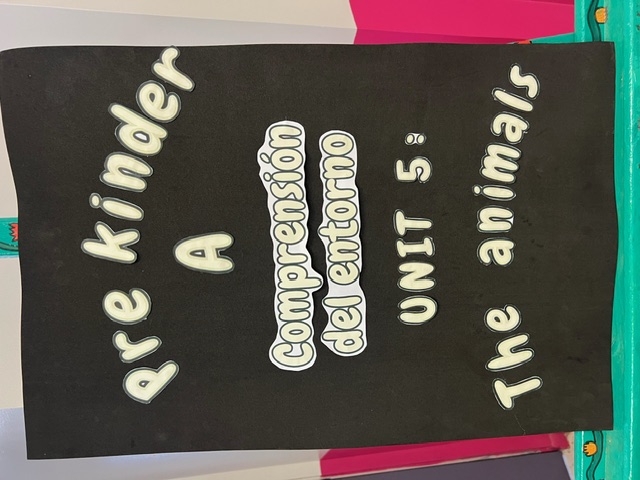 Pre kinder
A
Comprensión
del entorno
UNIT 5:
The animals